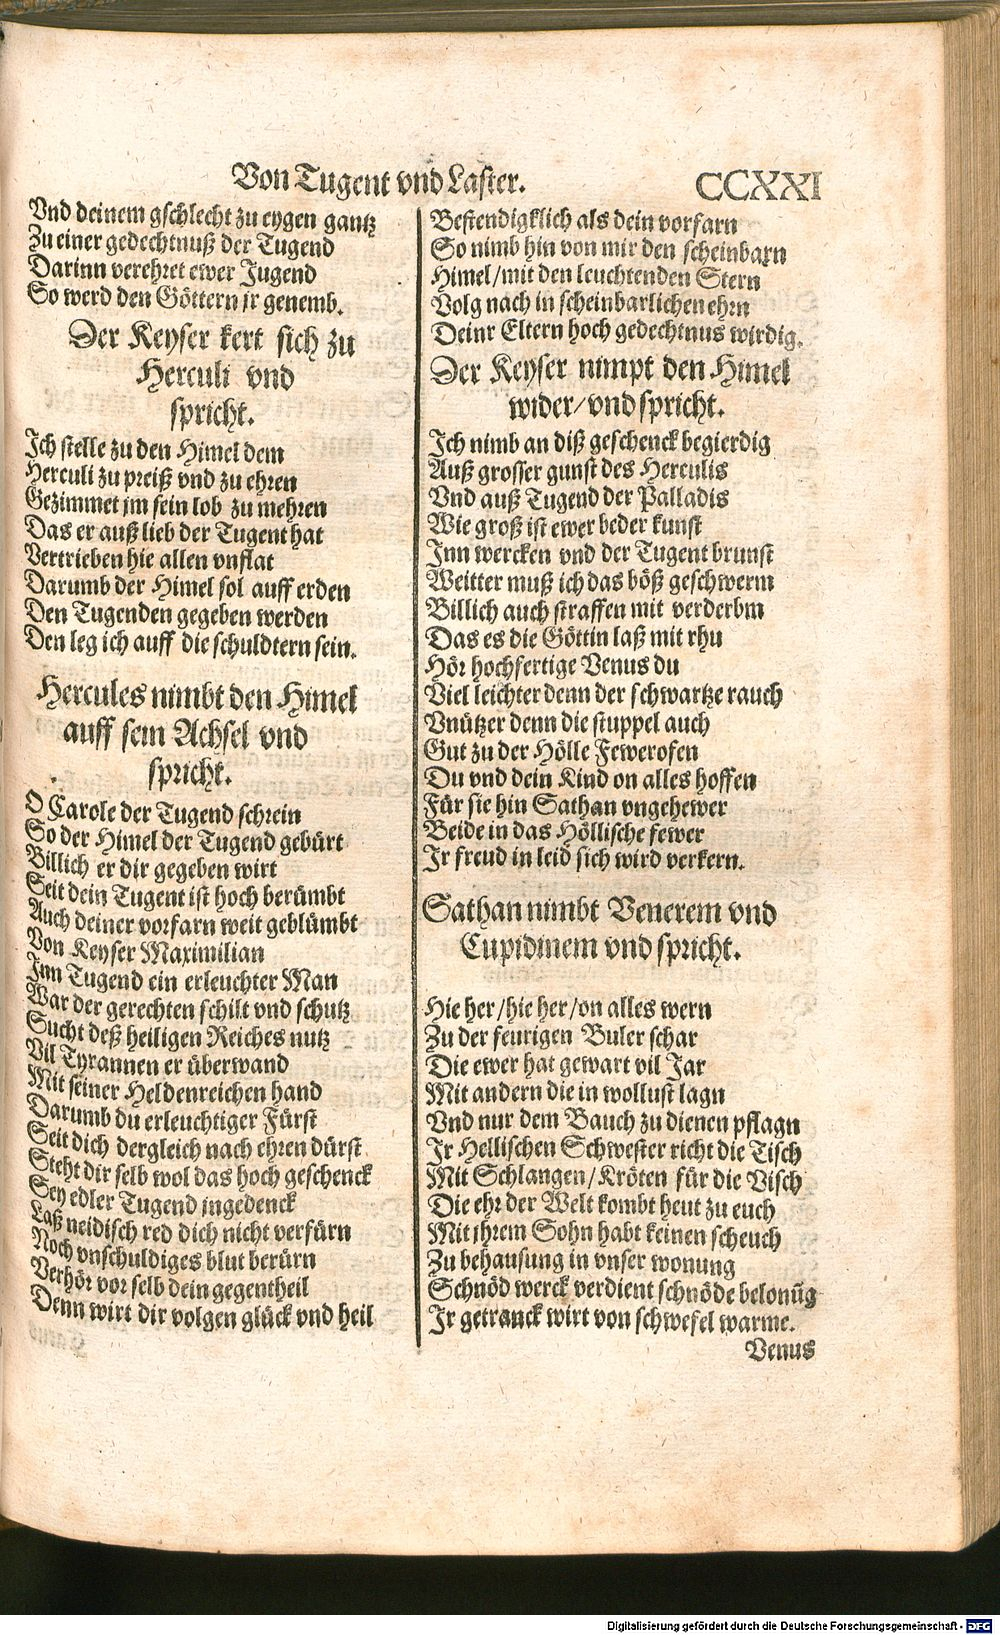 Von Tugent vnd Laster.
CCXXI
Vnd deinem gschlecht zu eygen gantz
Zu einer gedechtnuß der Tugend
Darinn verehret ewer Jugend
So werd den Göttern jr genemb.
Der Keyser kert sich zu
Herculi vnd
spricht.
Ich stelle zu den Himel dem
Herculi zu preiß vnd zu ehren
Gezimmet jm sein lob zu mehren
Das er auß lieb der Tugent hat
Vertrieben hie allen vnflat
Darumb der Himel sol auff erden
Den Tugenden gegeben werden
Den leg ich auff die schuldtern sein.
Hercules nimbt den Himel
auff sein Achsel vnd
spricht.
O Carole der Tugend schrein
So der Himel der Tugend gebürt
Billich er dir gegeben wirt
Seit dein Tugent ist hoch berümbt
Auch deiner vorfarn weit geblümbt
Von Keyser Maximilian
Inn Tugend ein erleuchter Man
War der gerechten schilt vnd schutz
Sucht deß heiligen Reiches nutz
Vil Tyrannen er überwand
Mit seiner Heldenreichen hand
Darumb du erleuchtiger Fürst
Seit dich dergleich nach ehren dürst
Steht dir selb wol das hoch geschenck
Sey edler Tugend ingedenck
Laß neidisch red dich nicht verfürn
Noch vnschuldiges blut berürn
Verhör vor selb dein gegentheil
Denn wirt dir volgen glück vnd heil
Bestendigklich als dein vorfarn
So nimb hin von mir den scheinbarn
Himel/mit den leuchtenden Stern
Volg nach in scheinbarlichen ehrn
Deinr Eltern hoch gedechtnus wirdig.
Der Keyser nimpt den Himel
wider/vnd spricht.
Ich nimb an diß geschenck begierdig
Auß grosser gunst des Herculis
Vnd auß Tugend der Palladis
Wie groß ist ewer beder kunst
Inn wercken vnd der Tugent brunst
Weitter muß ich das böß geschwerm
Billich auch straffen mit verderbm
Das es die Göttin laß mit rhu
Hör hochfertige Venus du
Viel leichter denn der schwartze rauch
Vnützer denn die stuppel auch
Gut zu der Hölle Fewerofen
Du vnd dein Kind on alles hoffen
Für sie hin Sathan vngehewer
Beide in das Höllische fewer
Ir freud in leid sich wird verkern.
Sathan nimbt Venerem vnd
Cupidinem vnd spricht.
Hie her/hie her/on alles wern
Zu der feurigen Buler schar
Die ewer hat gewart vil Jar
Mit andern die in wollust lagn
Vnd nur dem Bauch zu dienen pflagn
Ir Hellischen Schwester richt die Tisch
Mit Schlangen/Kröten für die Visch
Die ehr der Welt kombt heut zu euch
Mit ihrem Sohn habt keinen scheuch
Zu behausung in vnser wonung
Schnöd werck verdient schnöde belonūg
Ir getranck wirt von schwefel warme.
Venus
Digitalisierung gefördert durch die Deutsche Forschungsgemeinschaft - DFG